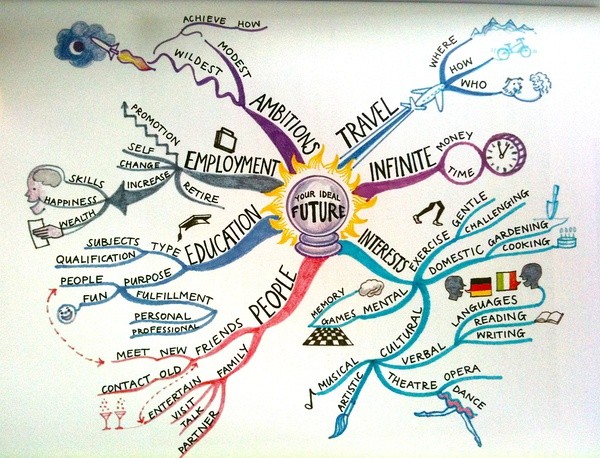 YOUR IDEAL
FUTURE
AMBITIONS
ACHIEVE HOW
MODEST
WILDEST
TRAVEL
WHERE
HOW
WHO
INFINITE
MONEY
TIME
INTERESTS
EXERCISE
GENTLE
CHALLENGING
DOMESTIC
GARDENING
COOKING
MENTAL
MEMORY
GAMES
CULTURAL
VERBAL
LANGUAGES
READING
WRITING
ARTISTIC
MUSICAL
THEATRE
OPERA
DANCE
PEOPLE
FRIENDS
NEW
MEET
OLD
CONTACT
FAMILY
ENTERTAIN
VISIT
TALK
PARTNER
EDUCATION
TYPE
SUBJECTS
QUALIFICATION
PURPOSE
PEOPLE
FUN
FULFILLMENT
PERSONAL
PROFESSIONAL
EMPLOYMENT
PROMOTION
SELF
CHANGE
INCREASE
SKILLS
HAPPINESS
WEALTH
RETIRE